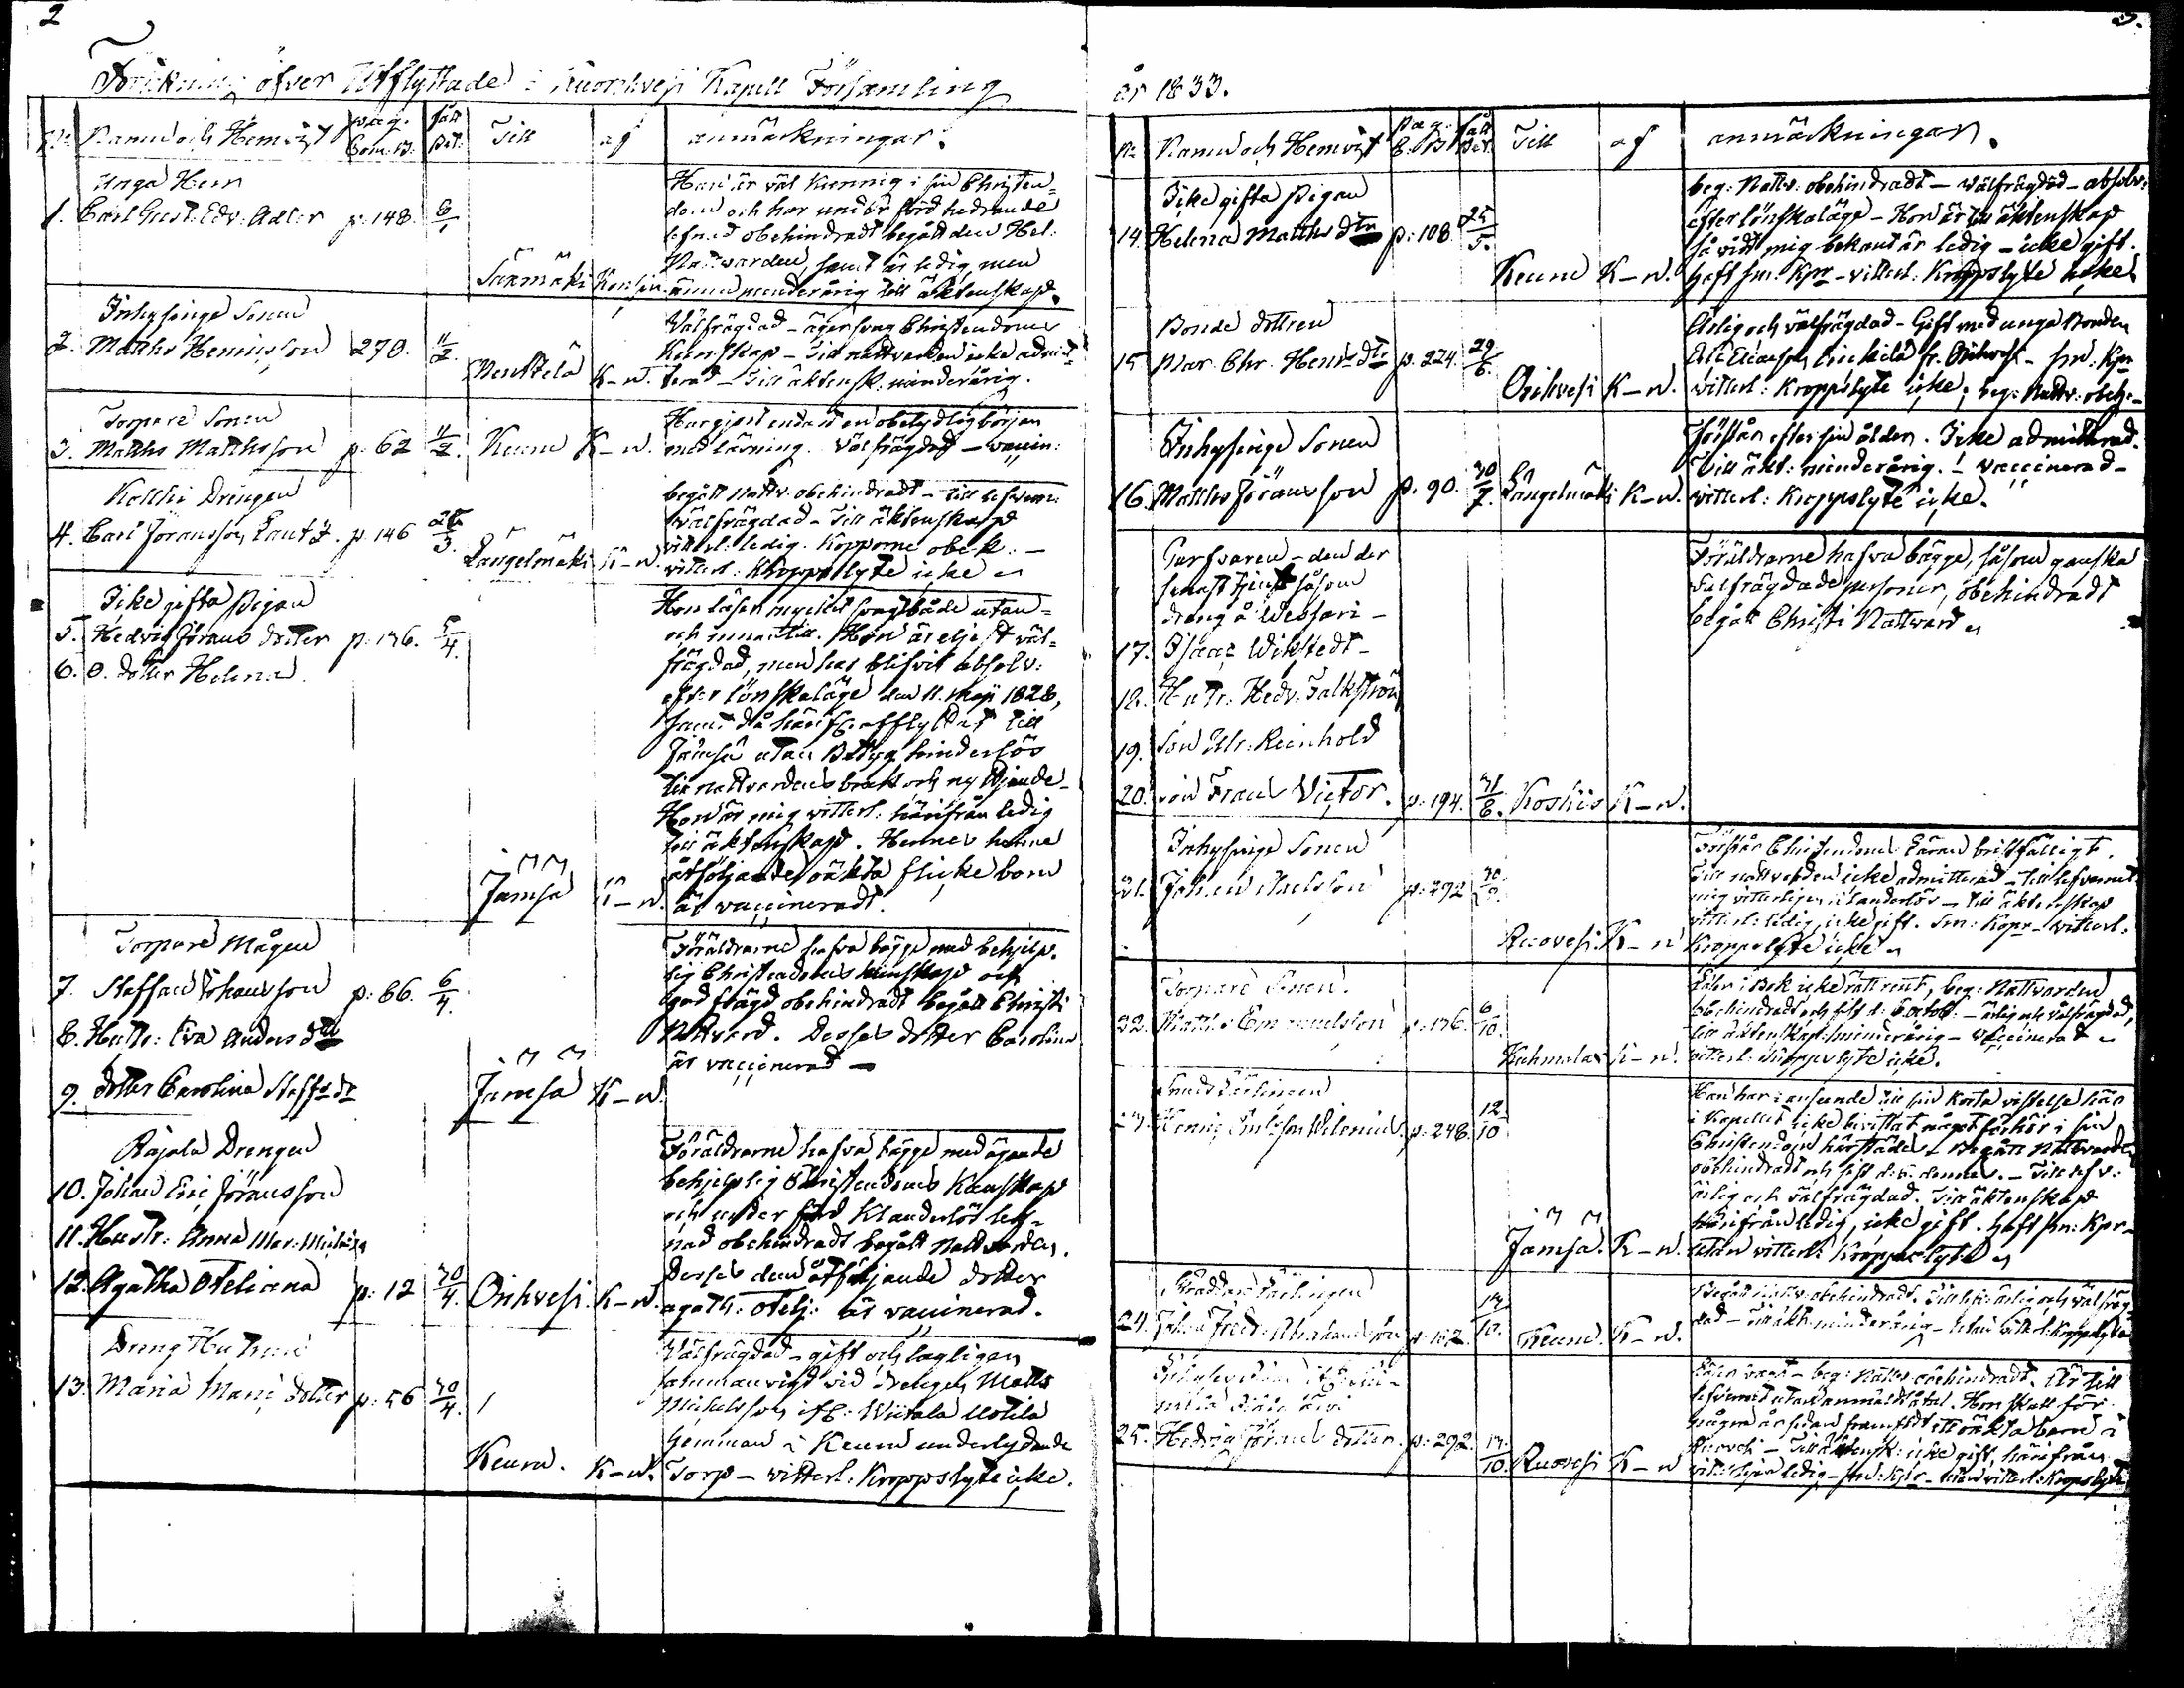 2
Förteckning öfver Utflyttade i Kuorehvesi Kapell Församling
No Namn och Hemvist pag. Com. B. fått Bet. Till af anmärkningar.
Unga Herrn
1. Carl Gust. Edv: Adler p: 148. 8/1
Saxmäki Konsin.
Han är väl kunnig i sin Christen=
dom och har under förd hedrande
lefnad obehindradt begått den Hel:
Nattvarden, samt är ledig, men
ännu minderårig till äktenskap.
Inhysinge Sonen
2. Matths Henricsson 270. 11/2.
Menttelä K-n.
Välfrägdad - äger svag Christendoms
Kunskap - Till nattvarden icke admit-
terad - Till äktensk: minderårig.
Torpare Sonen
3. Matths Matthsson p: 62 11/2. Keuru K-n.
Har gjort endast en obetydlig början
med läsning. Välfrägdad - vaccin:
Kollki Drängen
4. Carl Jöransson Lantz. p: 146 25/3.
Längelmäki K-n.
begått Nattv: obehindradt - Till lefvern:
välfrägdad - Till äktenskap
vitterl: ledig. Kopporne obek: -
vitterl: Kroppslyte icke
Icke gifta Pigan
5. Hedvig Jörans dotter p: 136. 5/4.
6. O. dotter Helena
Jämsä K-n.
Hon läser mycket svagt både utan=
och innantill. Hon är eljest väl=
frägdad, men har blifvit absolv:
efter lönskaläge den 11. Maji 1828,
samt då härifr. afflyttat till
Jämsä utan Betyg hinderlös
till nattvardens bruk och nyttjande -
Hon är mig vitterl: härifrån ledig
till äktenskap. Hennes henne
åtföljande oäkta flicke barn
är vaccineradt.
Torpare Mågen
7. Staffan Johansson p: 66. 6/4.
8. Hustr: Eva Anders dtr
9. dotter Carolina Staffs dr
Jämsä K-n.
Föräldrarne hafva bägge med behjelp-
lig Christendoms kunskap och
god frägd obehindradt begått Christi
Nattvard. Desses dotter Carolina
är vaccinerad -
Rajala Drängen
10. Johan Eric Jöransson
11. Hustr: Anna Mar: Michelsd
12. Agatha Otteliana p: 12 30/4. Orihvesi. K-n.
Föräldrarne hafva bägge med ägande
behjelplig Christendoms Kunskap
och under förd Klanderlös lef-
nad obehindradt begått Nattvarden.
Desses dem åtföljande dotter
Agath: Ottelj: är vaccinerad.
Dräng Hustrun
13. Maria Mari dotter p: 56 30/4.
Keuru. K-n.
Välfrägdad - gift och lagligen
sammanvigd vid drängen Matts
Michelsson ifr: Wiitala Uotila
hemman i Keuru underlydande
Torp - vitterl: Kroppslyte icke.
3.
år 1833.
No Namn och Hemvist pag: C: B: fått Bet. Till af anmärkningar.
Icke gifta Pigan
14. Helena Matths dtr p: 108 25/5.
Keuru K-n.
beg: Nattv: obehindradt - välfrägdad - absolv:
efter lönskaläge - Hon är till äktenskap
så vidt mig bekant är ledig - icke gift.
haft sm: Kpr - vitterl: Kroppslyte icke
Bonde dottren
15 Mar. Chr. Henrs dtr p: 224. 29/6.
Orihvesi K-n.
Ärlig och välfrägdad - Gift med unga Bonden
fr. Orihvesi - sm: Kpr
vitterl: Kroppslyte icke; beg: Nattv: obeh: -
Inhysinge Sonen
16. Matths Jöransson p. 90. 30/7. Längelmäki K-n.
Förstår efter sin ålder. Icke admitterad.
Till äkt: minderårig. - vaccinerad -
vitterl: Kroppslyte icke.
Garfvaren - den der
senast tjent såsom
dräng å Wessari -
17. Isaac Wikstedt -
18. Hustr. Hedv. Falkström
19. Son Ulr: Reinhold
20. son Frans Victor. p: 194. 31/8. Koskis K-n.
Föräldrarne hafva bägge, såsom ganska
välfrägdade personer, obehindradt
begått Christi Nattvard
Inhysinge Sonen
21. Johan p: 292 30/9.
Ruovesi. K-n
Förstår Christendoms Läran bristfälligt.
Till nattvarden icke admitterad - Till lefvernet
mig vitterligen klanderlös - till äktenskap
vitterl: ledig, icke gift. Sm: Kopr - vitterl.
Kroppslyte icke
Torpare Sonen.
22. Matths Emanuelsson p: 136. 6/10.
Kuhmalax K-n.
Läser i Bok icke rätt rent, beg: Nattvarden
obehindradt och sist d: 6 octob: - ärlig och välfrägdad,
till äktenskap: minderårig - vaccinerad -
vitterl: Kroppslyte icke.
Smeds Lärlingen
23. Henric p: 248. 12/10
Jämsä. K-n.
Han har i anseende till sin korta vistelse här
i Kapellet icke bevistat något förhör i sin
Christendom härstädes - Begått Nattvarden
obehindradt och sist d: 6. dennes. - Till lefv:
ärlig och välfrägdad. Till äktenskap
härifrån ledig, icke gift. haft sm: Kpr -
utan vitterl: Kroppslyte
Skräddare Lärlingen
24. Johan Fredr. Abrahamsson p: 102. 13/10. Keuru. K-n.
Begått nattv: obehindradt. Till lefv: ärlig och välfräg-
dad - Till äkt: minderårig - utan vitterl: Kroppslyte
25. Hedvig Jörans dotter. p: 292. 13/10. Ruovesi K-n
Läser svagt - beg: Nattv: obehindradt. Är till
lefvernet utan anmärkt åtal. Hon skall för
några år sedan framfödt ett oäkta barn i
Ruovesi - Till äktensk: icke gift, härifrån
vitterligen ledig - sm: Kpr - utan vitterl: Kroppslyte